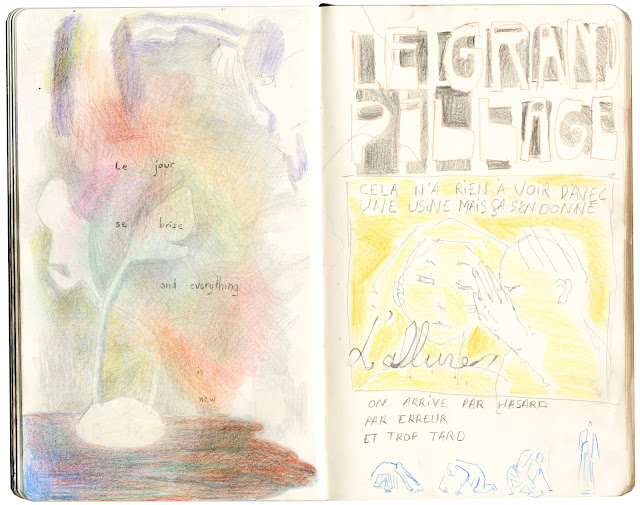 Le jour
se brise
and everything
is
new
LE GRAND
PILLAGE
CELA N'A RIEN À VOIR D'AVEC
UNE USINE MAIS ÇA S'EN DONNE
L'allure
ON ARRIVE PAR HASARD
PAR ERREUR
ET TROP TARD